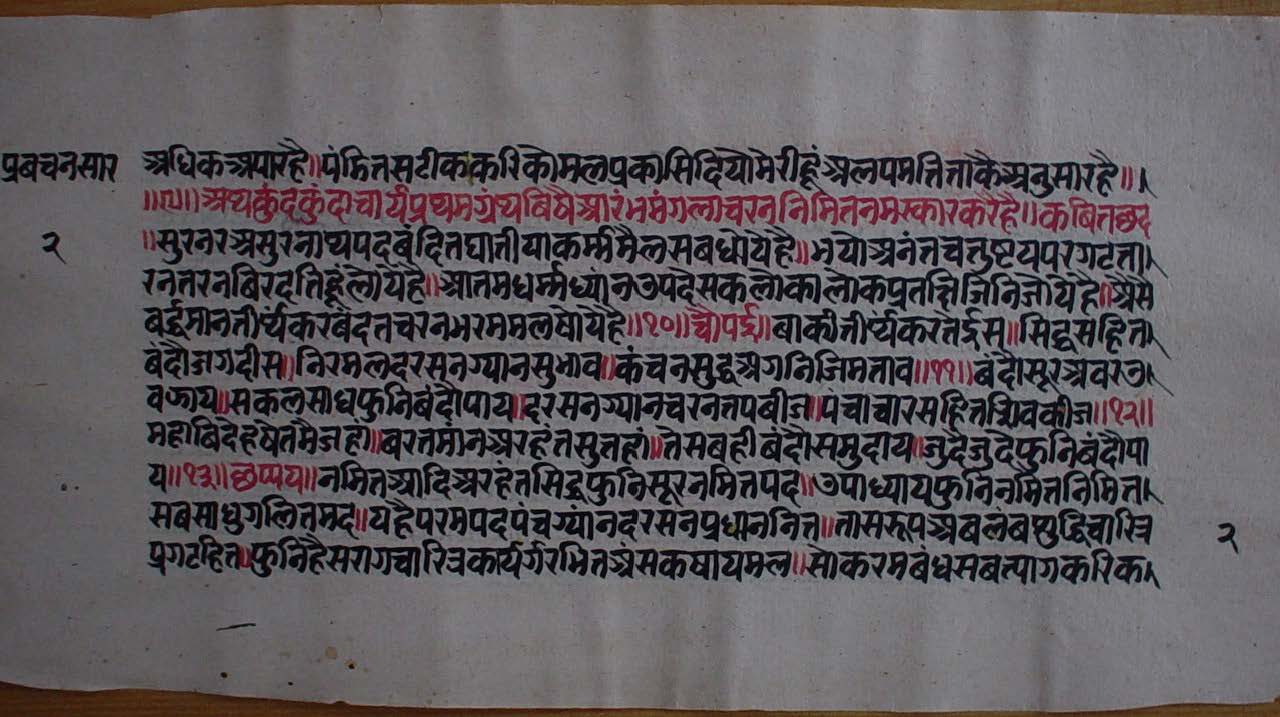 प्रबचनसार
अधिकअपारहै॥पंडितसटीककरिकोमलप्रकासिदियौमेरीहूंअलपमतिताकैअनुसारहै॥
॥९॥अथकुंदकुंदाचार्यप्रथमग्रंथबिषैआरंभमंगलाचरननिमितनमस्कारकरैहै॥कबितछंद
२
॥सुरनरअसुरनाथपदबंदितघातीयाकर्ममैलसबधोयेहै॥भयोअनंतचतुष्टयपरगटता
रनतरनबिरदतिहूंलोयेहै॥आतमधर्मध्यांनउपदेसकलोकालोकप्रतक्षिजिनिजोयेहै॥अैसे
बर्द्धमानतीर्थंकरबंदतचरनभरममलषोयेहै॥१०॥चौपई॥बाकीतीर्थंकरतेईस॥सिद्धसहित
बंदौजगदीस॥निरमलदरसनग्यानसुभाव॥कंचनसुद्धअगनिजिमताव॥११॥बंदौसूरअवरउ
वज्झाय॥सकलसाधफुनिबंदौपाय॥दरसनग्यानचरनतपबीज॥पंचाचारसहितशिवकीज॥१२॥
महाबिदेहषेतमैजहां॥बरतमांनअरहंतसुतहां॥तेसबहीबंदौसमुदाय॥जुदेजुदेफुनिबंदौपा
य॥१३॥छप्पय॥नमितआदिअरहंतसिद्धफुनिसूरनमितपद॥उपाध्यायफुनिनमितनिमित
सबसाधुगलितमद॥यहैपरमपदपंचग्यांनदरसनप्रधाननित॥तासरूपअबलंबशुद्धिचारित्र
प्रगटहित॥फुनिहैसरागचारित्रकार्यगरभितअंसकषायमल॥सोकरमबंधसबत्यागकरिक
२